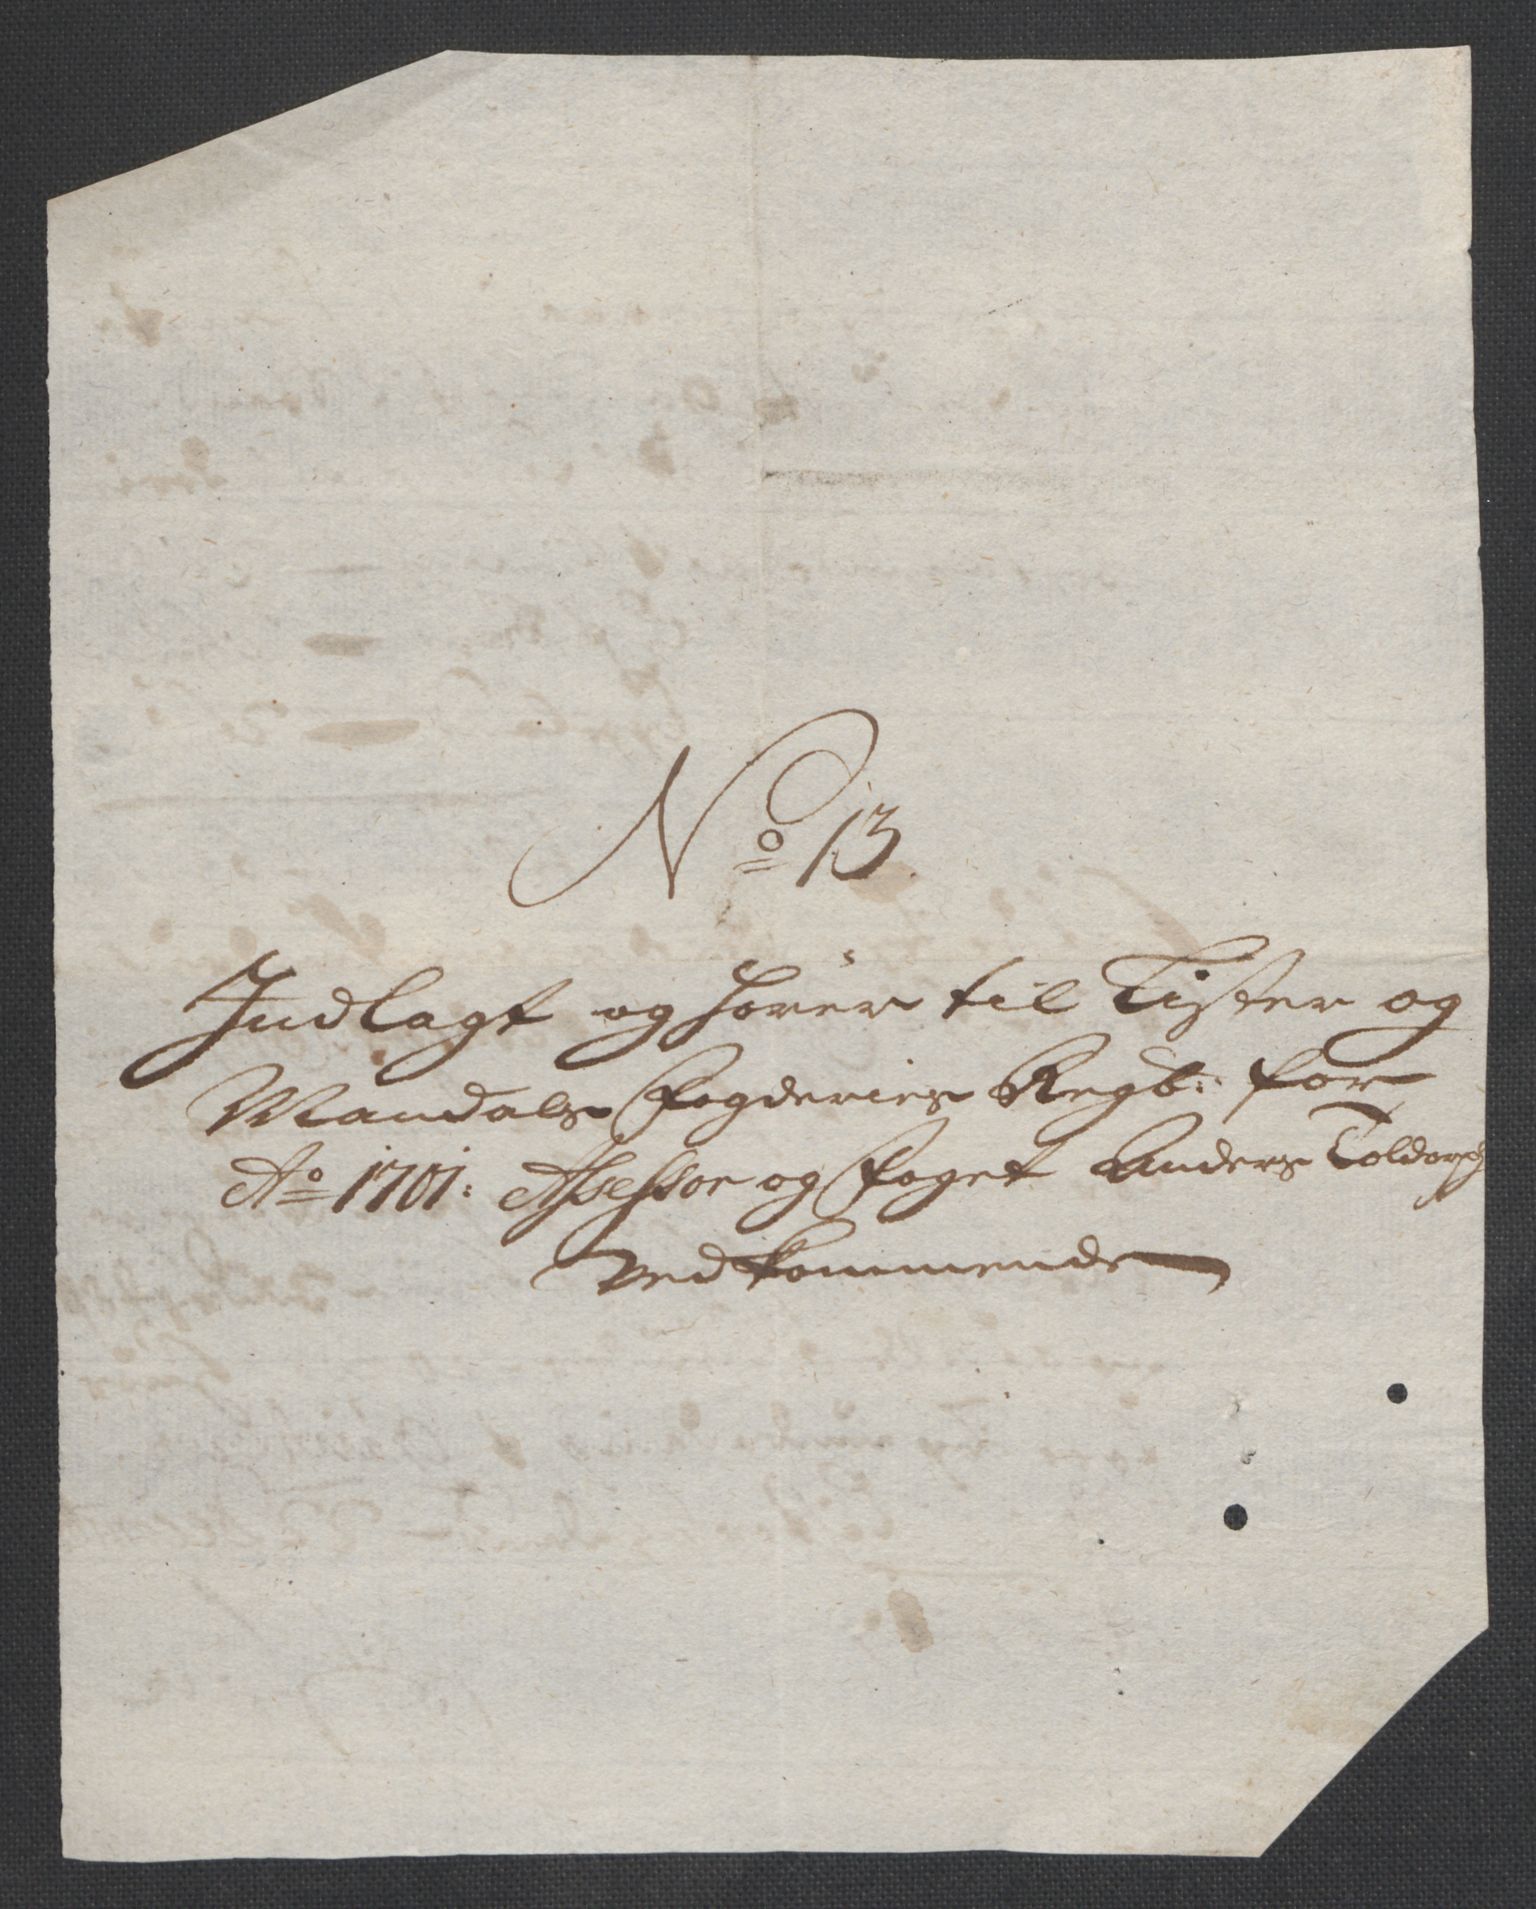 No 13
Indlagt og hörer til Lister og
Mandals fogderies Regb: for
Ao 1701: Assessor og foget Anders Toldorph
Vedkommende